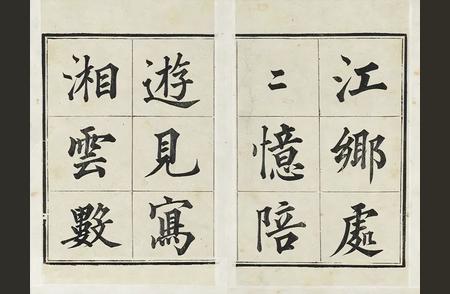 江鄉處
二憶陪
遊見寫
湘雲數